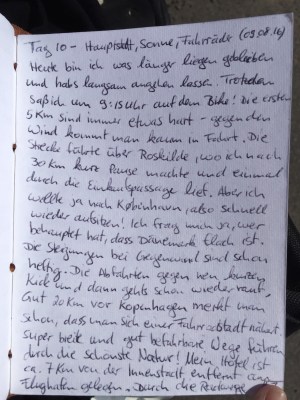 Tag 10 - Hauptstadt, Sonne, Fahrräder (09.08.16)
Heute bin ich was länger liegen geblieben
und habs langsam angehen lassen. Trotzdem
saß ich um 9:15 Uhr auf dem Bike! Die ersten
5 Km sind immer etwas hart - gegen den
Wind kommt man kaum in Fahrt. Die
Strecke führte über Roskilde, wo ich nach
30 km kurz Pause machte und einmal
durch die Einkaufspassage lief. Aber ich
wollte ja nach København, also schnell
wieder aufsitzen! Ich frag mich ja, wer
behauptet hat, dass Dänemark flach ist.
Die Steigungen bei Gegenwind sind schon
heftig. Die Abfahrten gegen nen kurzen
Kick und dann gehts schon wieder rauf.
Gut 20 km vor Kopenhagen merkt man
schon, dass man sich einer Fahrradstadt nähert.
Super breite und gut befahrbare Wege führen
durch die schönste Natur! Mein Hotel ist
ca. 7 km von der Innenstadt entfernt
Flughafen gelegen. Durch die